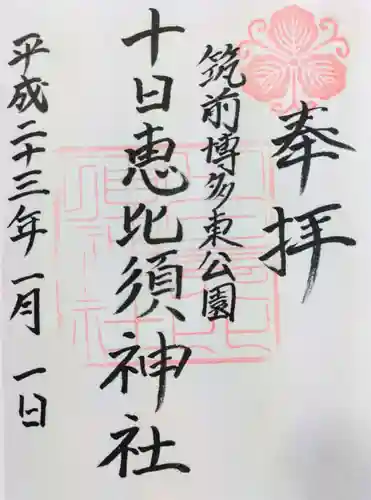 奉拝
筑前博多東公園
十日恵比須神社
平成二十三年一月一日